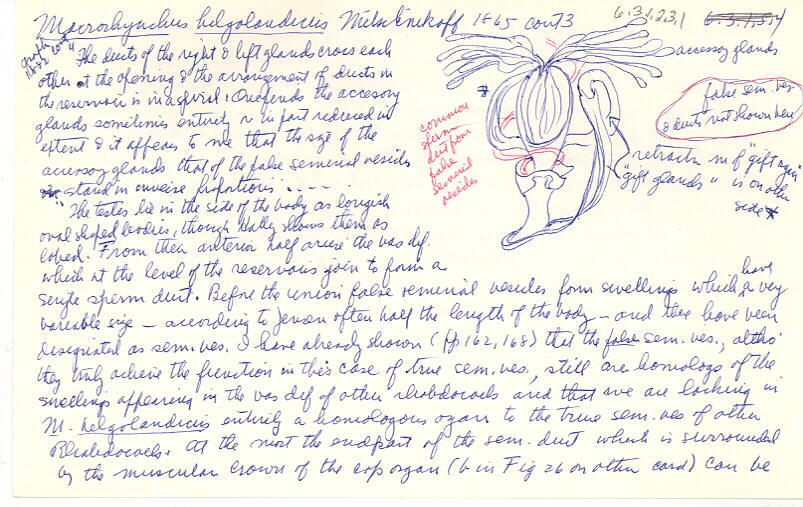 Macrorhynchus helgolandicus Metschnikoff 1865 cont 3
6.3.1.2.3.1
6.3.1.3.4
Graff 1882 cont
"The ducts of the right & left glands cross each
other at the opening & the arrangement of ducts in
the reservoir is in a spiral. One finds the accessory
glands sometimes entirely or in part reduced in
extent & it appears to me that the size of the
accessory glands that of the false seminal vesicles
stand in inverse proportions -----
"The testes lie in the side of the body as longish
oval shaped bodies, though Hallez shows them as
lobed. From their anterior half arise the vas def.
which at the level of the reservoirs join to form a
single sperm duct. Before the union false seminal vesicles form swellings which have a very
variable size – according to Jensen often half the length of the body – and these have been
designated as sem. ves. I have already shown (pp 162, 168) that the false sem. ves., altho'
they truly achieve the function in this case of true sem. ves., still are homologs of the
swellings appearing in the vas def of other rhabdocoels and that we are lacking in
M. helgolandicus entirely a homologous organ to the true sem. ves of other
Rhabdocoels. At the most the endpart of the sem. duct which is surrounded
by the muscular crown of the cop organ (b in Fig 26 on other card) can be
accessory glands
false sem. ves.
& ducts not shown here
common
sperm
duct from
false
seminal
vesicles
retractor m of "gift organ"
"gift glands" is on other
side